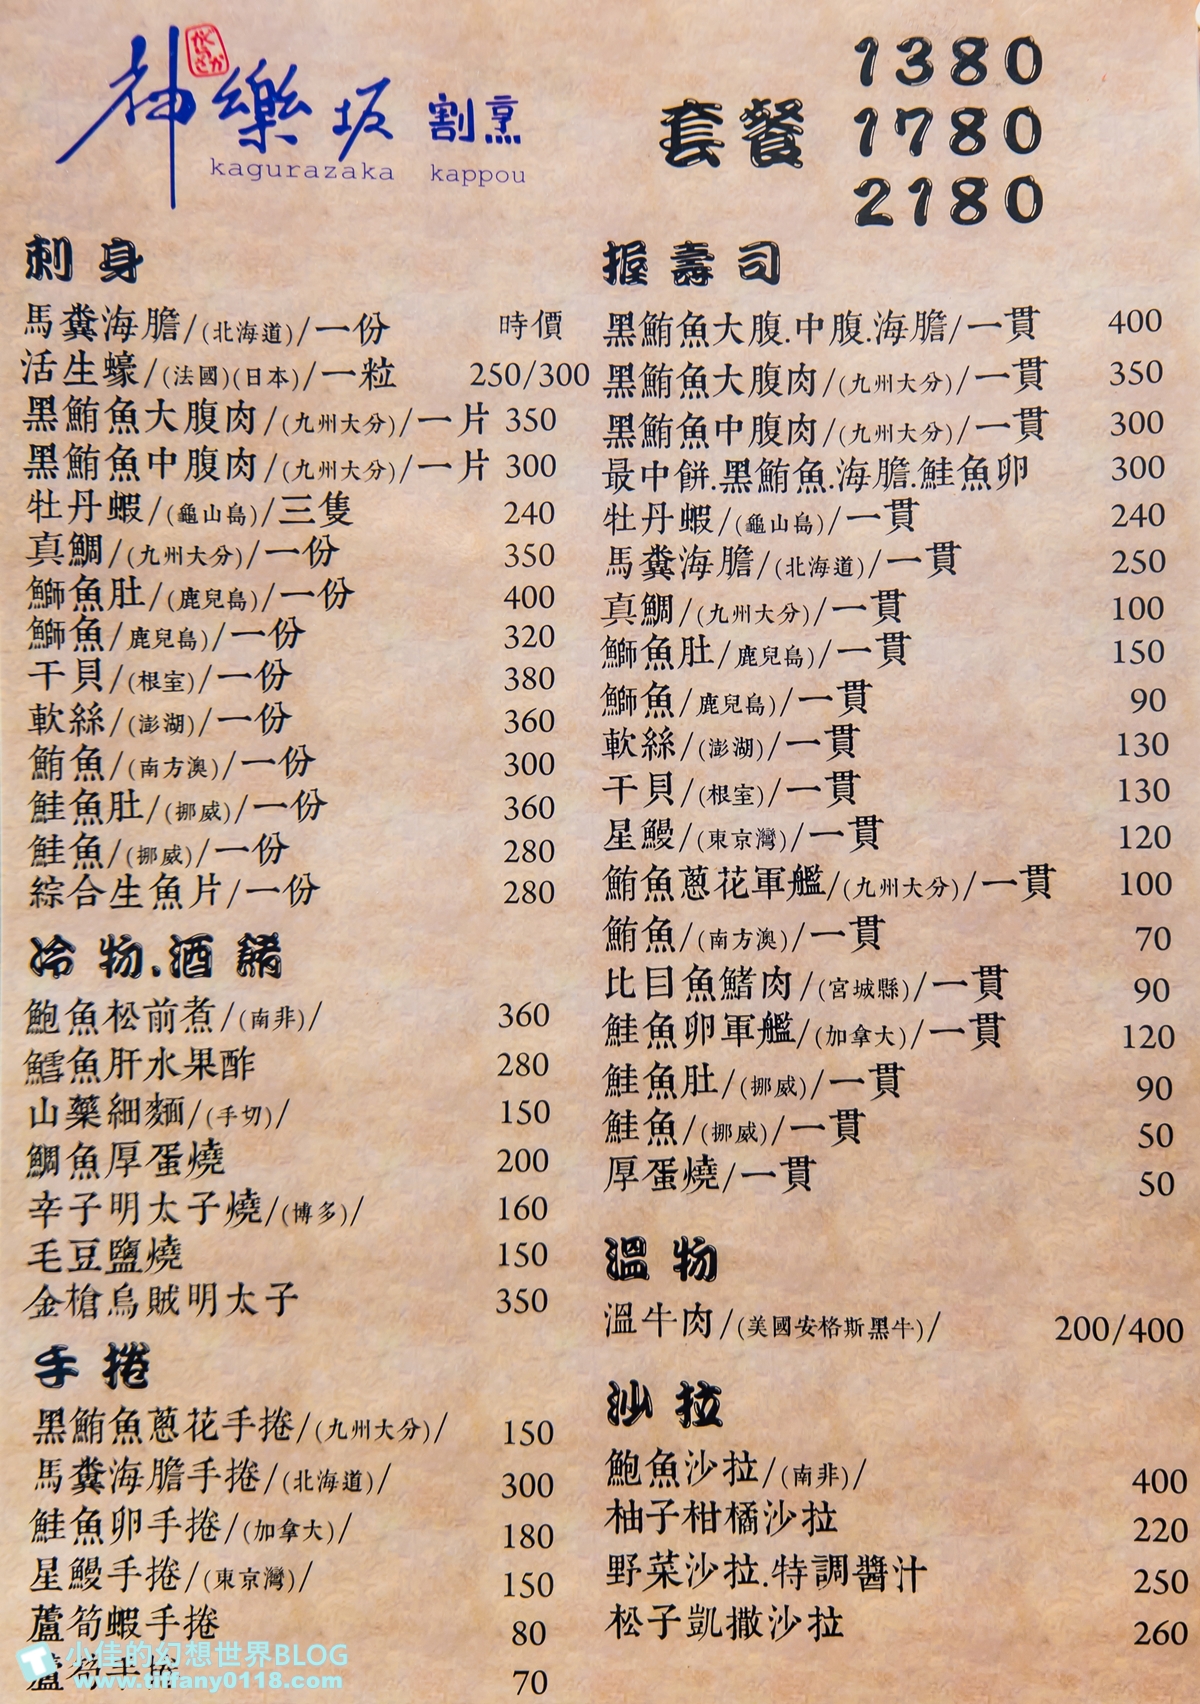 神樂坂 割烹
かぐらざか
kagurazaka kappou
套餐
1380
1780
2180
刺身
馬糞海膽/(北海道)/一份 時價
活生蠔/(法國)(日本)/一粒 250/300
黑鮪魚大腹肉/(九州大分)/一片 350
黑鮪魚中腹肉/(九州大分)/一片 300
牡丹蝦/(龜山島)/三隻 240
真鯛/(九州大分)/一份 350
鰤魚肚/(鹿兒島)/一份 400
鰤魚/鹿兒島)/一份 320
干貝/(根室)/一份 380
軟絲/(澎湖)/一份 360
鮪魚/(南方澳)/一份 300
鮭魚肚/(挪威)/一份 360
鮭魚/(挪威)/一份 280
綜合生魚片/一份 280
冷物.酒餚
鮑魚松前煮/(南非)/ 360
鱈魚肝水果酢 280
山藥細麵/(手切)/ 150
鯛魚厚蛋燒 200
辛子明太子燒/(博多)/ 160
毛豆鹽燒 150
金槍烏賊明太子 350
手捲
黑鮪魚蔥花手捲/(九州大分)/ 150
馬糞海膽手捲/(北海道)/ 300
鮭魚卵手捲/(加拿大)/ 180
星鰻手捲/(東京灣)/ 150
蘆筍蝦手捲 80
蘆筍手捲 70
握壽司
黑鮪魚大腹.中腹.海膽/一貫 400
黑鮪魚大腹肉/(九州大分)/一貫 350
黑鮪魚中腹肉/(九州大分)/一貫 300
最中餅.黑鮪魚.海膽.鮭魚卵 300
牡丹蝦/(龜山島)/一貫 240
馬糞海膽/(北海道)/一貫 250
真鯛/(九州大分)/一貫 100
鰤魚肚/鹿兒島)/一貫 150
鰤魚/鹿兒島)/一貫 90
軟絲/(澎湖)/一貫 130
干貝/(根室)/一貫 130
星鰻/(東京灣)/一貫 120
鮪魚蔥花軍艦/(九州大分)/一貫 100
鮪魚/(南方澳)/一貫 70
比目魚鰭肉/(宮城縣)/一貫 90
鮭魚卵軍艦/(加拿大)/一貫 120
鮭魚肚/(挪威)/一貫 90
鮭魚/(挪威)/一貫 50
厚蛋燒/一貫 50
溫物
溫牛肉/(美國安格斯黑牛)/ 200/400
沙拉
鮑魚沙拉/(南非)/ 400
柚子柑橘沙拉 220
野菜沙拉.特調醬汁 250
松子凱撒沙拉 260
小佳的幻想世界BLOG
www.tiffany0118.com